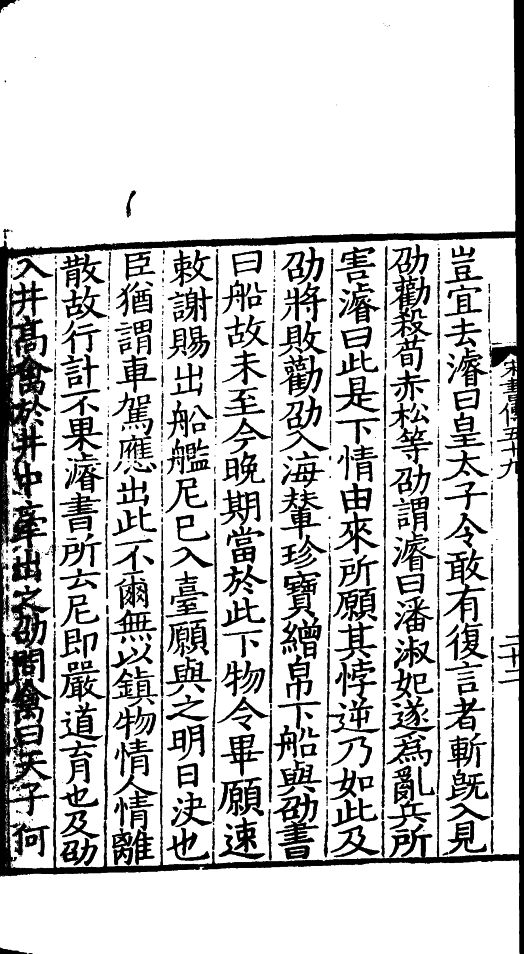 宋書傳五十九
二十二
豈宜去濬曰皇太子令敢有復言者斬旣入見
劭勸殺荀赤松等劭謂濬曰潘淑妃遂爲亂兵所
害濬曰此是下情由來所願其悖逆乃如此及
劭將敗勸劭入海輦珍寶繒帛下船與劭書
曰船故未至今晚期當於此下物令畢願速
敕謝賜出船艦尼巳入臺願與之明日決也
臣猶謂車駕應出此不爾無以鎮物情人情離
散故行計不果濬書所云尼即嚴道育也及劭
入井高禽於井中牽出之劭問禽曰天子何